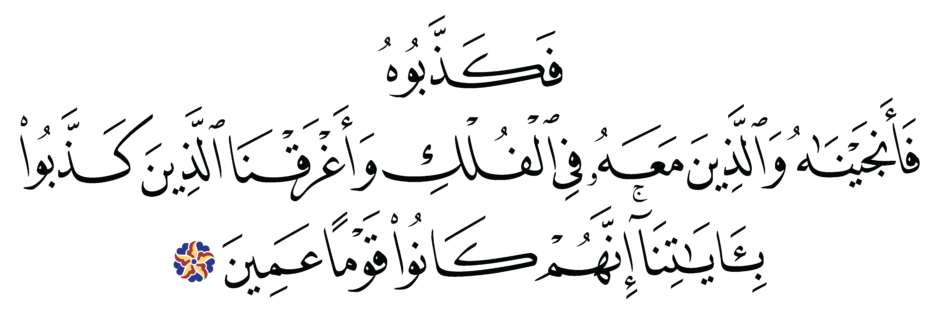 فَكَذَّبُوهُ
فَأَنجَيْنَٰهُ وَٱلَّذِينَ مَعَهُۥ فِي ٱلْفُلْكِ وَأَغْرَقْنَا ٱلَّذِينَ كَذَّبُوا۟
بِـَٔايَٰتِنَآ ۚ إِنَّهُمْ كَانُوا۟ قَوْمًا عَمِينَ